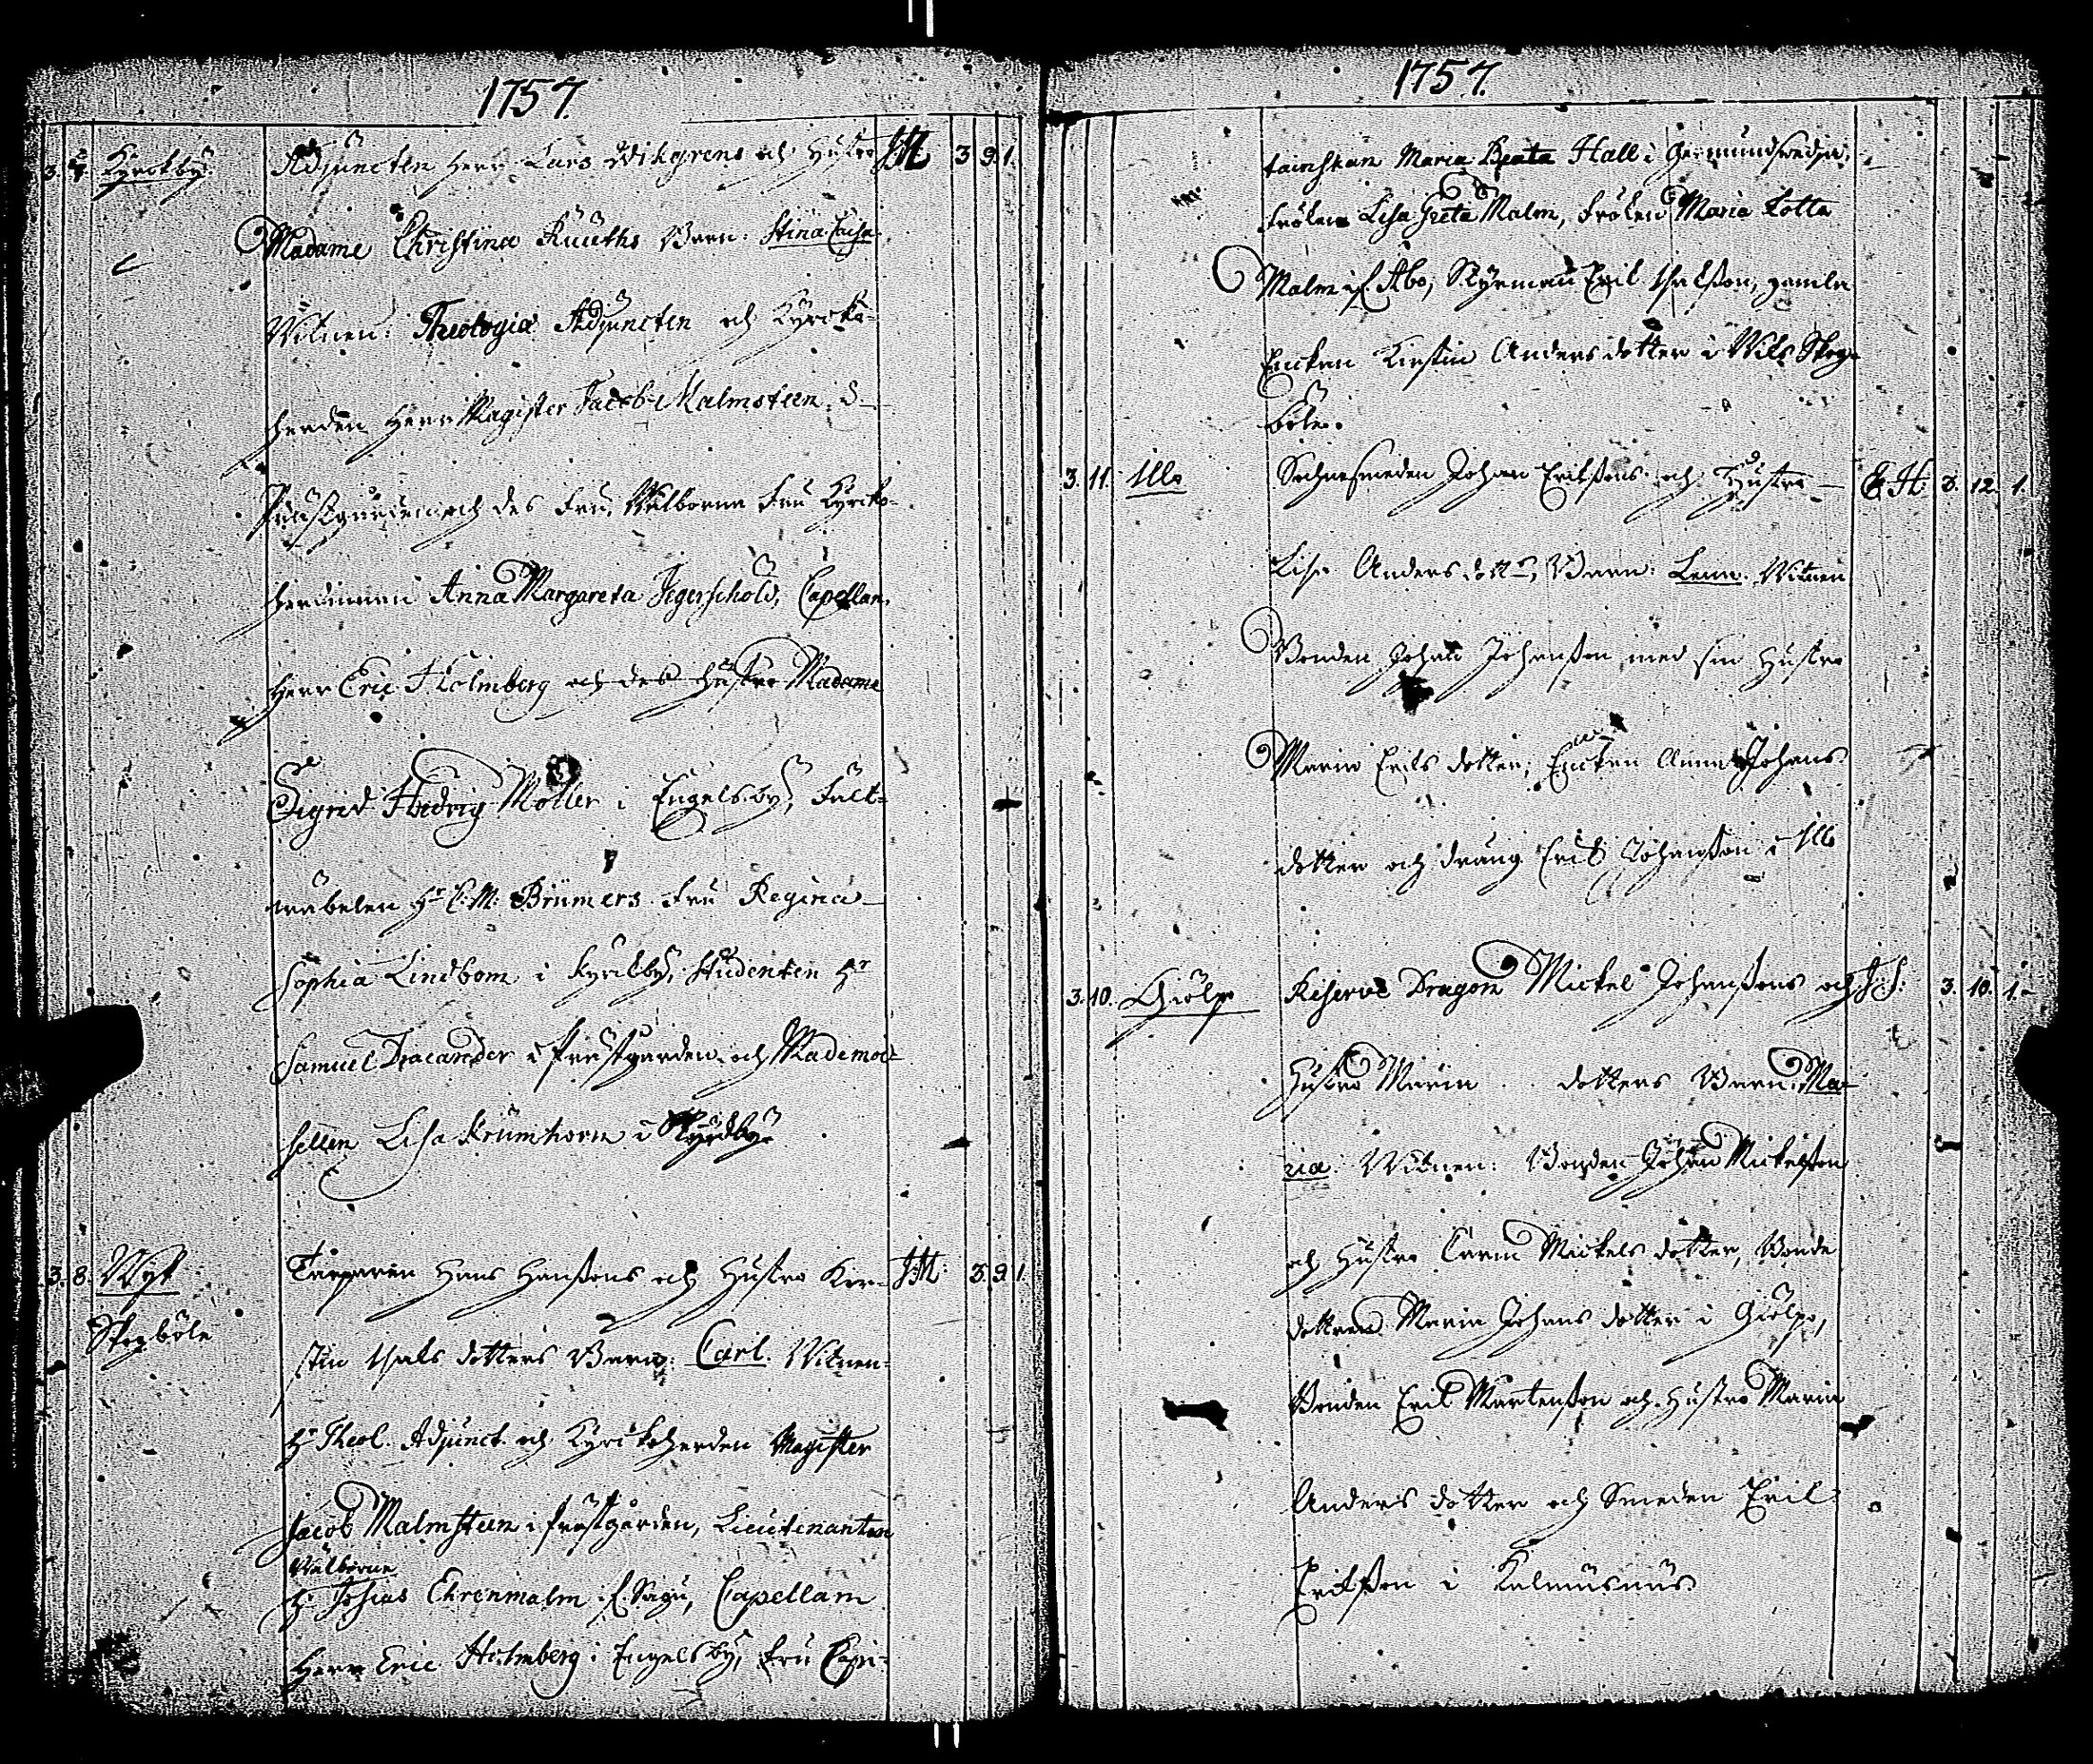 1757.
3. 7. Kyrckby. Adjuncten Herr Lars Wikgrens och Hustro JM 3 9 1.
Madame Christina Ruuths Barn: Stina Caisa
Witnen: Theologiæ Adjuncten och Kyrcko-
herden Herr Magister Jacob Malmsteen i
Prästgården och des Fru, Wälborne Fru Kyrcko-
herdinnan Anna Margareta Segerschöld, Capellan.
Herr Eric Holmberg och des Hustro Madame
Sigrid Hedvig Möller i Engelsby, Fält-
wäbelen Hr C: M: Brümers Fru Regina
Sophia Lindbom i Kyrkby, Studenten Hr
Samuel Pracander i Prästgården och Mademoi-
sellen Lisa Krumhorn i Kyrckby.
3. 8. West Skogböle Hans Hanssons och Hustro Ker- JM: 3. 9. 1.
stin Isaks dotters Barn: Carl. Witnen:
Hr Theol. Adjunct. och Kyrckoherden Magister
Jacob Malmsteen i Prästgården, Lieutenanten
Wälborne
Hr Josias Ehrenmalm i S. Sagu, Capellan
Herr Eric Holmberg i Engelsby, Fru Capi-
1757.
tainskan Maria Beata Hall i Germundsvedja,
Fröken Lisa Greta Malm, Fröken Maria Lotta
Malm if. Åbo, Styrman Eric Isaksson, gamla
Enckan Kirstin Anders dotter i West Skog-
böle.
3. 11. Illo Johan Erikssons och Hustro E H 3. 12. 1.
Lisa Anders dottr, Barn: Lena. Witnen
Bonden Johan Johansson med sin Hustro
Maria Eriks dotter, Enckan Anna Johans
dotter och dräng Erik Johansson i Illo
3. 10. Giölpo Reserve Dragon Mickel Johanssons och J: S: 3. 10. 1.
Hustro Maria .. dotters Barn: Ma-
ria. Witnen: Bonden Johan Mickelsson
och Hustro Carin Mickels dotter, Bonde
dottren Maria Johans dotter i Giölpo,
Bonden Erik Mårtensson och Hustro Maria
Anders dotter och Smeden Erik
Eriksson i Kalmusnäs